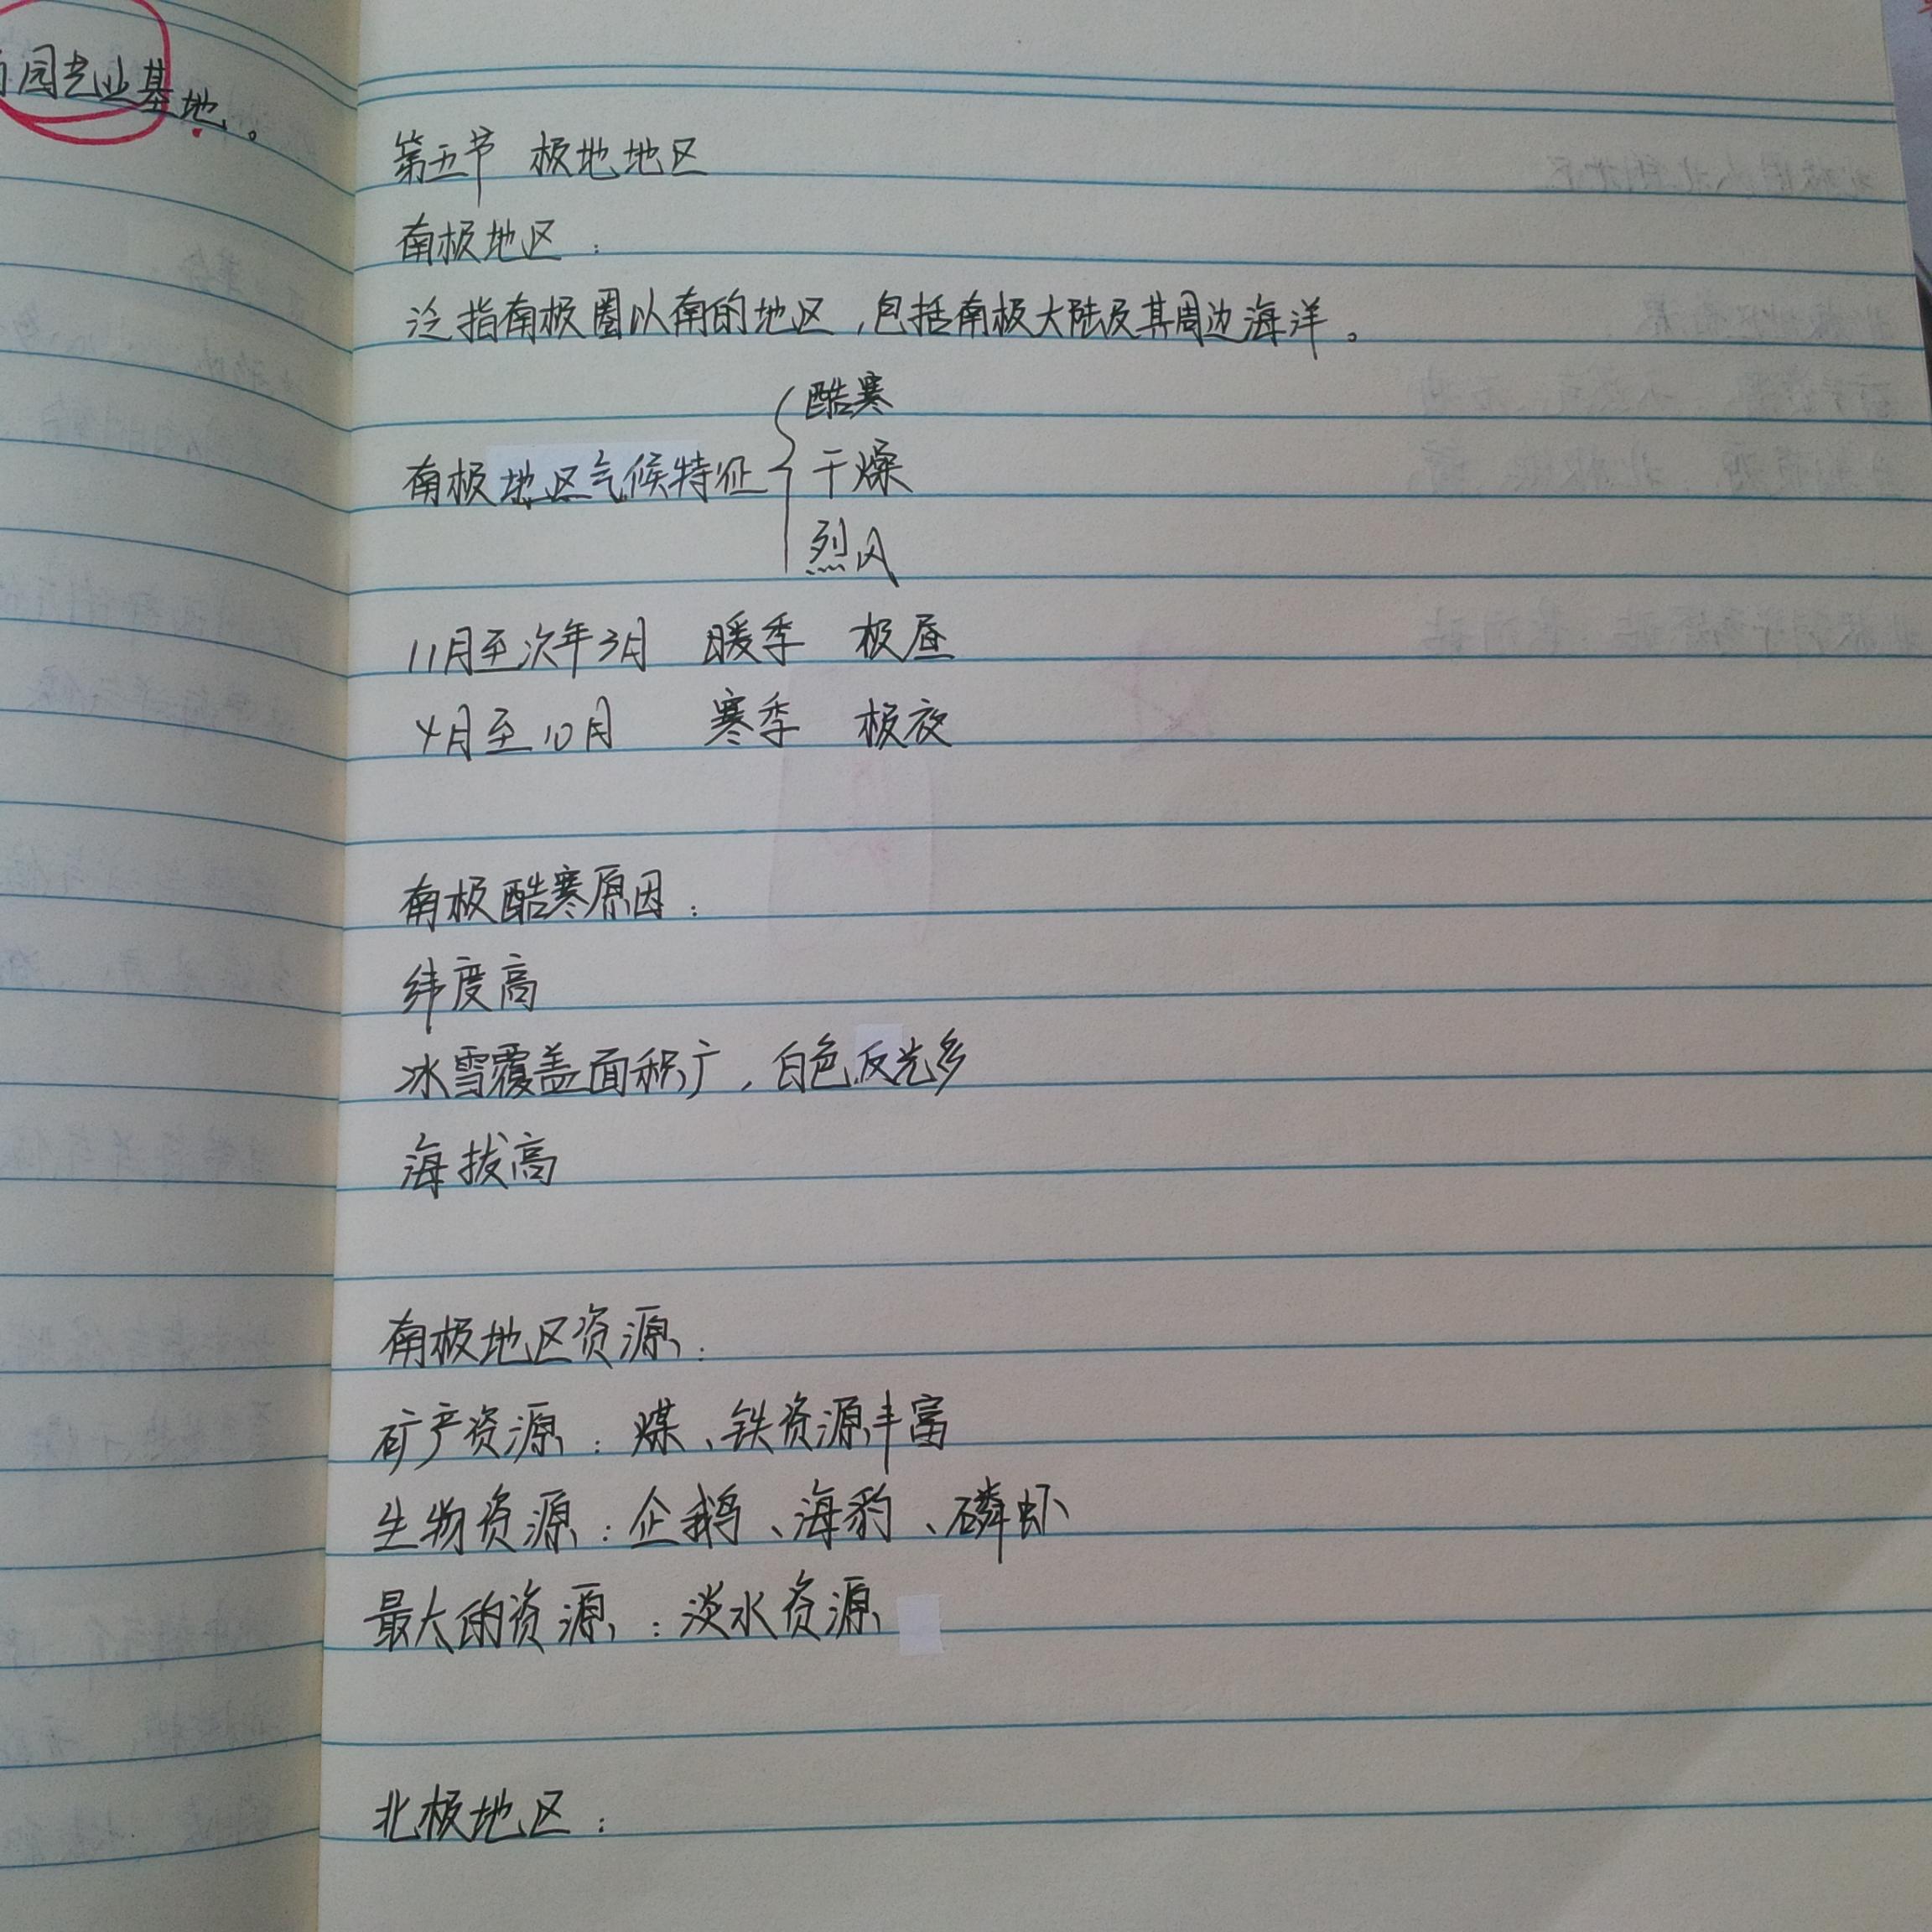 园艺业基地。
第五节 极地地区
南极地区：
泛指南极圈以南的地区，包括南极大陆及其周边海洋。
南极地区气候特征
酷寒
干燥
烈风
11月至次年3月 暖季 极昼
4月至10月 寒季 极夜
南极酷寒原因：
纬度高
冰雪覆盖面积广，白色反光多
海拔高
南极地区资源：
矿产资源：煤、铁资源丰富
生物资源：企鹅、海豹、磷虾
最大的资源：淡水资源
北极地区：